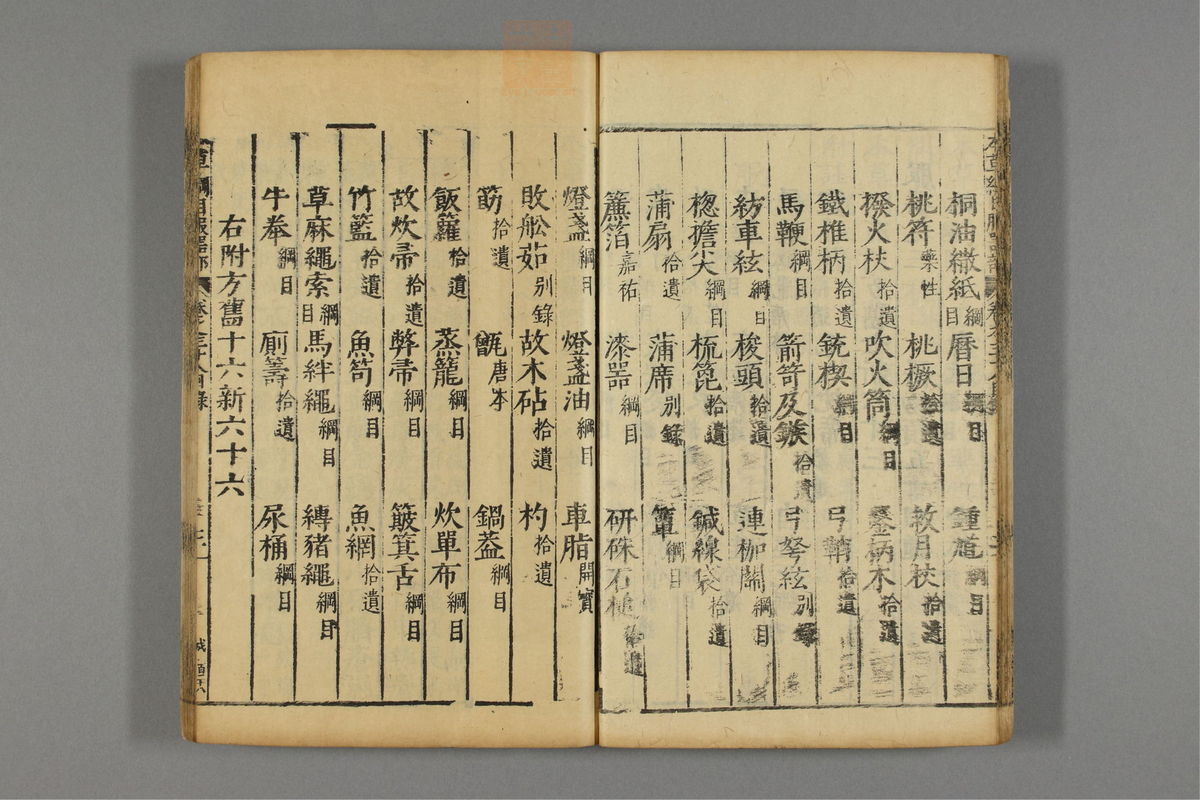 桐油繖紙綱目 曆日綱目 鍾馗綱目
桃符藥性 桃橛拾遺 救月杖拾遺
撥火杖拾遺 吹火筒綱目 鑿柄木拾遺
鐵椎柄拾遺 銃楔綱目 弓鞘拾遺
馬鞭綱目 箭笴及鏃拾遺 弓弩絃別錄
紡車絃綱目 梭頭拾遺 連枷關綱目
楤擔尖綱目 梳篦拾遺 鍼線袋拾遺
蒲扇拾遺 蒲席別錄 簟綱目
簾箔嘉祐 漆器綱目 研硃石槌拾遺
燈盞綱目 燈盞油綱目 車脂開寶
敗舩茹別錄 故木砧拾遺 杓拾遺
筯拾遺 甑唐本 鍋蓋綱目
飯籮拾遺 蒸籠綱目 炊單布綱目
故炊帚拾遺 弊帚綱目 簸箕舌綱目
竹籃拾遺 魚笱綱目 魚網拾遺
草麻繩索綱目 馬絆繩綱目 縛豬繩綱目
牛桊綱目 廁籌拾遺 尿桶綱目
右附方舊十六新六十六